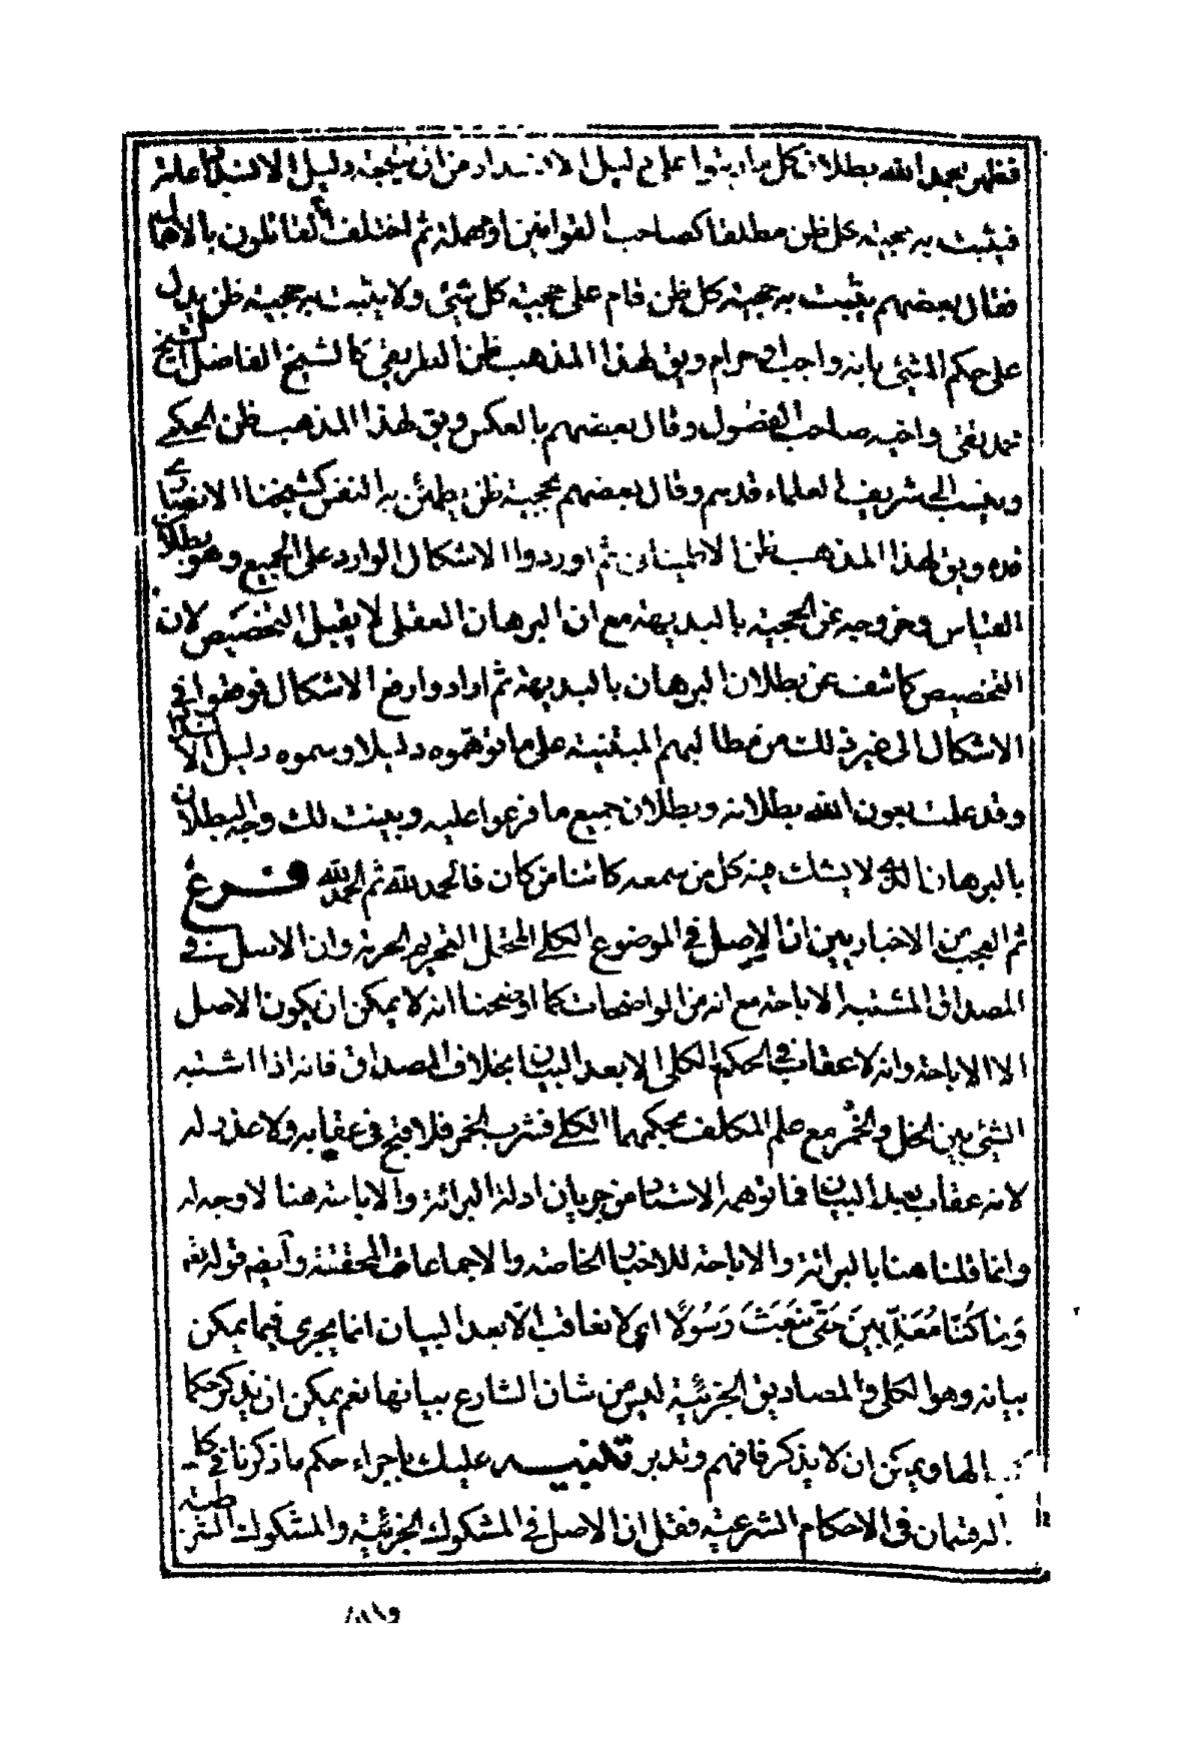 فظهر بحمد الله بطلان كل ما رتبوا على دليل الانسداد من ان نتيجة دليل الانسداد عامة
فيثبت به حجية كل ظن مطلقا كصاحب القوانين او مهملة ثم اختلف القائلون بالاهمال
فقال بعضهم يثبت به حجية كل ظن قام على حجية كل شئ ولا يثبت به حجية ظن يدل
على حكم الشئ بانه واجب او حرام ويق لهذا المذهب ظن الطريقى كالشيخ الفاضل الشيخ
محمد تقى واخيه صاحب الفصول وقال بعضهم بالعكس ويق لهذا المذهب ظن الحكمى
وينسب الى شريف العلماء قدهم وقال بعضهم بحجية ظن يطمئن به النفس كشيخنا الانصارى
قده ويق لهذا المذهب ظن الاطمينانى ثم اوردوا الاشكال الوارد على الجميع وهو بطلان
القياس وخروجه عن الحجية بالبديهة مع ان البرهان العقلى لا يقبل التخصيص لان
التخصيص كاشف عن بطلان البرهان بالبديهة ثم ارادوا رفع الاشكال فوضوا فى
الاشكال الى غير ذلك من مطالبهم المبتنية على ما توهموه دليلا وسموه دليل الانسداد
وقد علمت بعون الله بطلانه وبطلان جميع ما فرعوا عليه وبينت لك وجه البطلان
بالبرهان الذى لا يشك فيه كل من سمعه كائنا من كان فالحمد لله ثم الحمد لله فرع
ثم العجب من الاخباريين ان الاصل فى الموضوع الكلى المحتمل التحريم الحرمة وان الاصل فى
المصداق المشتبه الاباحة مع انه من الواضحات كما اوضحنا انه لا يمكن ان يكون الاصل
الا الاباحة وانه لا عقاب فى الحكم الكلى الا بعد البيان بخلاف المصداق فانه اذا اشتبه
الشئ بين الخل والخمر مع علم المكلف بحكمهما الكلى فشرب الخمر فلا قبح فى عقابه ولا عذر له
لانه عقاب بعد البيان فما توهمه الاستاد من جريان ادلة البرائة والاباحة هنا لا وجه له
وانما قلنا هنا بالبرائة والاباحة للاخبار الخاصة والاجماعات المحققة وايضا قوله تع
وَمَا كُنَّا مُعَذِّبِينَ حَتَّى نَبْعَثَ رَسُولًا اى لا نعاقب الا بعد البيان انما يجرى فيما يمكن
بيانه وهو الكلى والمصاديق الجزئية ليس من شان الشارع بيانها نعم يمكن ان يذكر حكما
لها ويمكن ان لا يذكر فافهم وتدبر تنبيه عليك باجراء حكم ما ذكرنا فى كل
القسمان فى الاحكام الشرعية فقل ان الاصل فى المشكوك الجزئية والمشكوك الشرطية